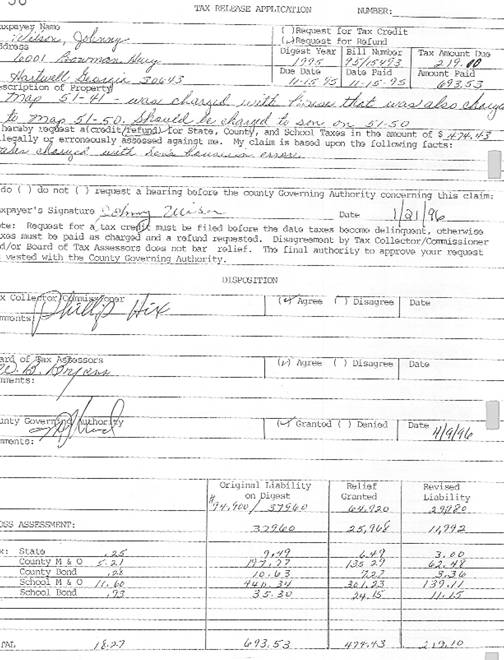 TAX RELEASE APPLICATION NUMBER:
axpayer Name
Wilson, Johnny
ddress
6001 Bowman Hwy
Hartwell Georgia 30643
( )Request for Tax Credit
(✓)Request for Refund
Digest Year Bill Number Tax Amount Due
1995 95/15493 219.00
Due Date Date Paid Amount Paid
11-15-95 11-15-95 693.53
scription of Property
map 51-41 - was charged with house that was also charge
to map 51-50. Should be charged to son on 51-50
hereby request a(credit/refund) for State, County, and School Taxes in the amount of $ 474.43
legally or erroneously assessed against me. My claim is based upon the following facts:
charged with son's house in error.
do ( ) do not ( ) request a hearing before the county Governing Authority concerning this claim:
xpayer's Signature Johnny Wilson Date 1/21/96
te: Request for a tax credit must be filed before the date taxes become delinquent, otherwise
xes must be paid as charged and a refund requested. Disagreement by Tax Collector/Commissioner
d/or Board of Tax Assessors does not bar relief. The final authority to approve your request
vested with the County Governing Authority.
DISPOSITION
x Collector/Commissioner (✓) Agree ( ) Disagree Date
Phillip Hix
mments:
ard of Tax Assessors (✓) Agree ( ) Disagree Date
mments:
unty Governing Authority (✓) Granted ( ) Denied Date 4/9/96
mments:
Original Liability on Digest Relief Granted Revised Liability
$94,900/37960 64,920 29980
OSS ASSESSMENT: 37960 25,968 11,992
x: State .25 9.49 6.49 3.00
County M & O 5.21 197.77 135.29 62.48
County Bond .28 10.63 7.27 3.36
School M & O 11.60 440.34 301.23 139.11
School Bond .93 35.30 24.15 11.15
TAL 18.27 693.53 474.43 219.10